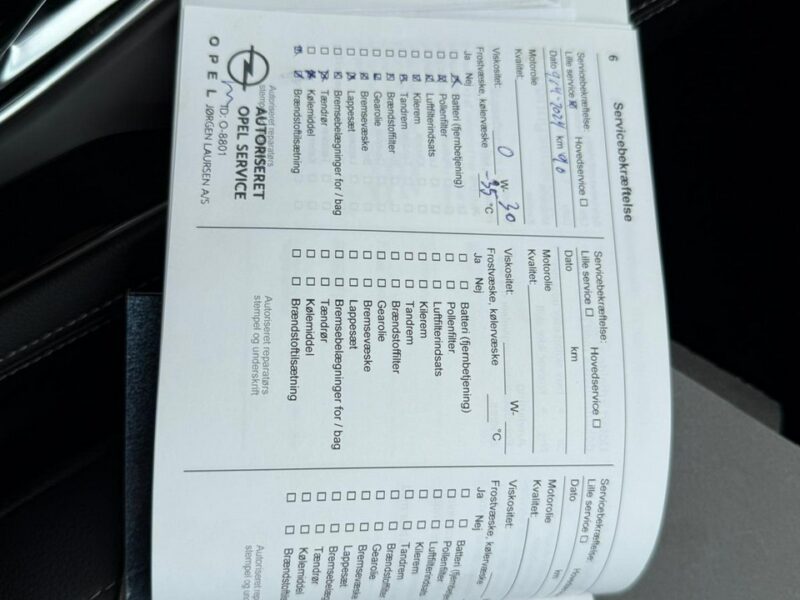 6
Servicebekræftelse
Servicebekræftelse:
Lille service Hovedservice
Dato 9/4 2024 km 90
Motorolie
Kvalitet:
Viskositet: 0 W- 30
Frostvæske, kølervæske -35 °C
Ja Nej
Batteri (fjernbetjening)
Pollenfilter
Luftfilterindsats
Kilerem
Tandrem
Brændstoffilter
Gearolie
Bremsevæske
Lappesæt
Bremsebelægninger for / bag
Tændrør
Kølemiddel
Brændstoftilsætning
Autoriseret reparatørs
AUTORISERET
OPEL SERVICE
ID: O-8801
OPEL JØRGEN LAURSEN A/S
Servicebekræftelse:
Lille service Hovedservice
Dato km
Motorolie
Kvalitet:
Viskositet: W-
Frostvæske, kølervæske °C
Ja Nej
Batteri (fjernbetjening)
Pollenfilter
Luftfilterindsats
Kilerem
Tandrem
Brændstoffilter
Gearolie
Bremsevæske
Lappesæt
Bremsebelægninger for / bag
Tændrør
Kølemiddel
Brændstoftilsætning
Autoriseret reparatørs
stempel og underskrift
Servicebekræftelse:
Lille service
Dato km
Motorolie
Kvalitet:
Viskositet:
Frostvæske, kølervæske
Ja Nej
Batteri (fjernbe
Pollenfilter
Luftfilterindsats
Kilerem
Tandrem
Brændstoffilter
Gearolie
Bremsevæske
Lappesæt
Bremsebelæg
Tændrør
Kølemiddel
Brændstoftilsæ
Autoriseret repa
stempel og und